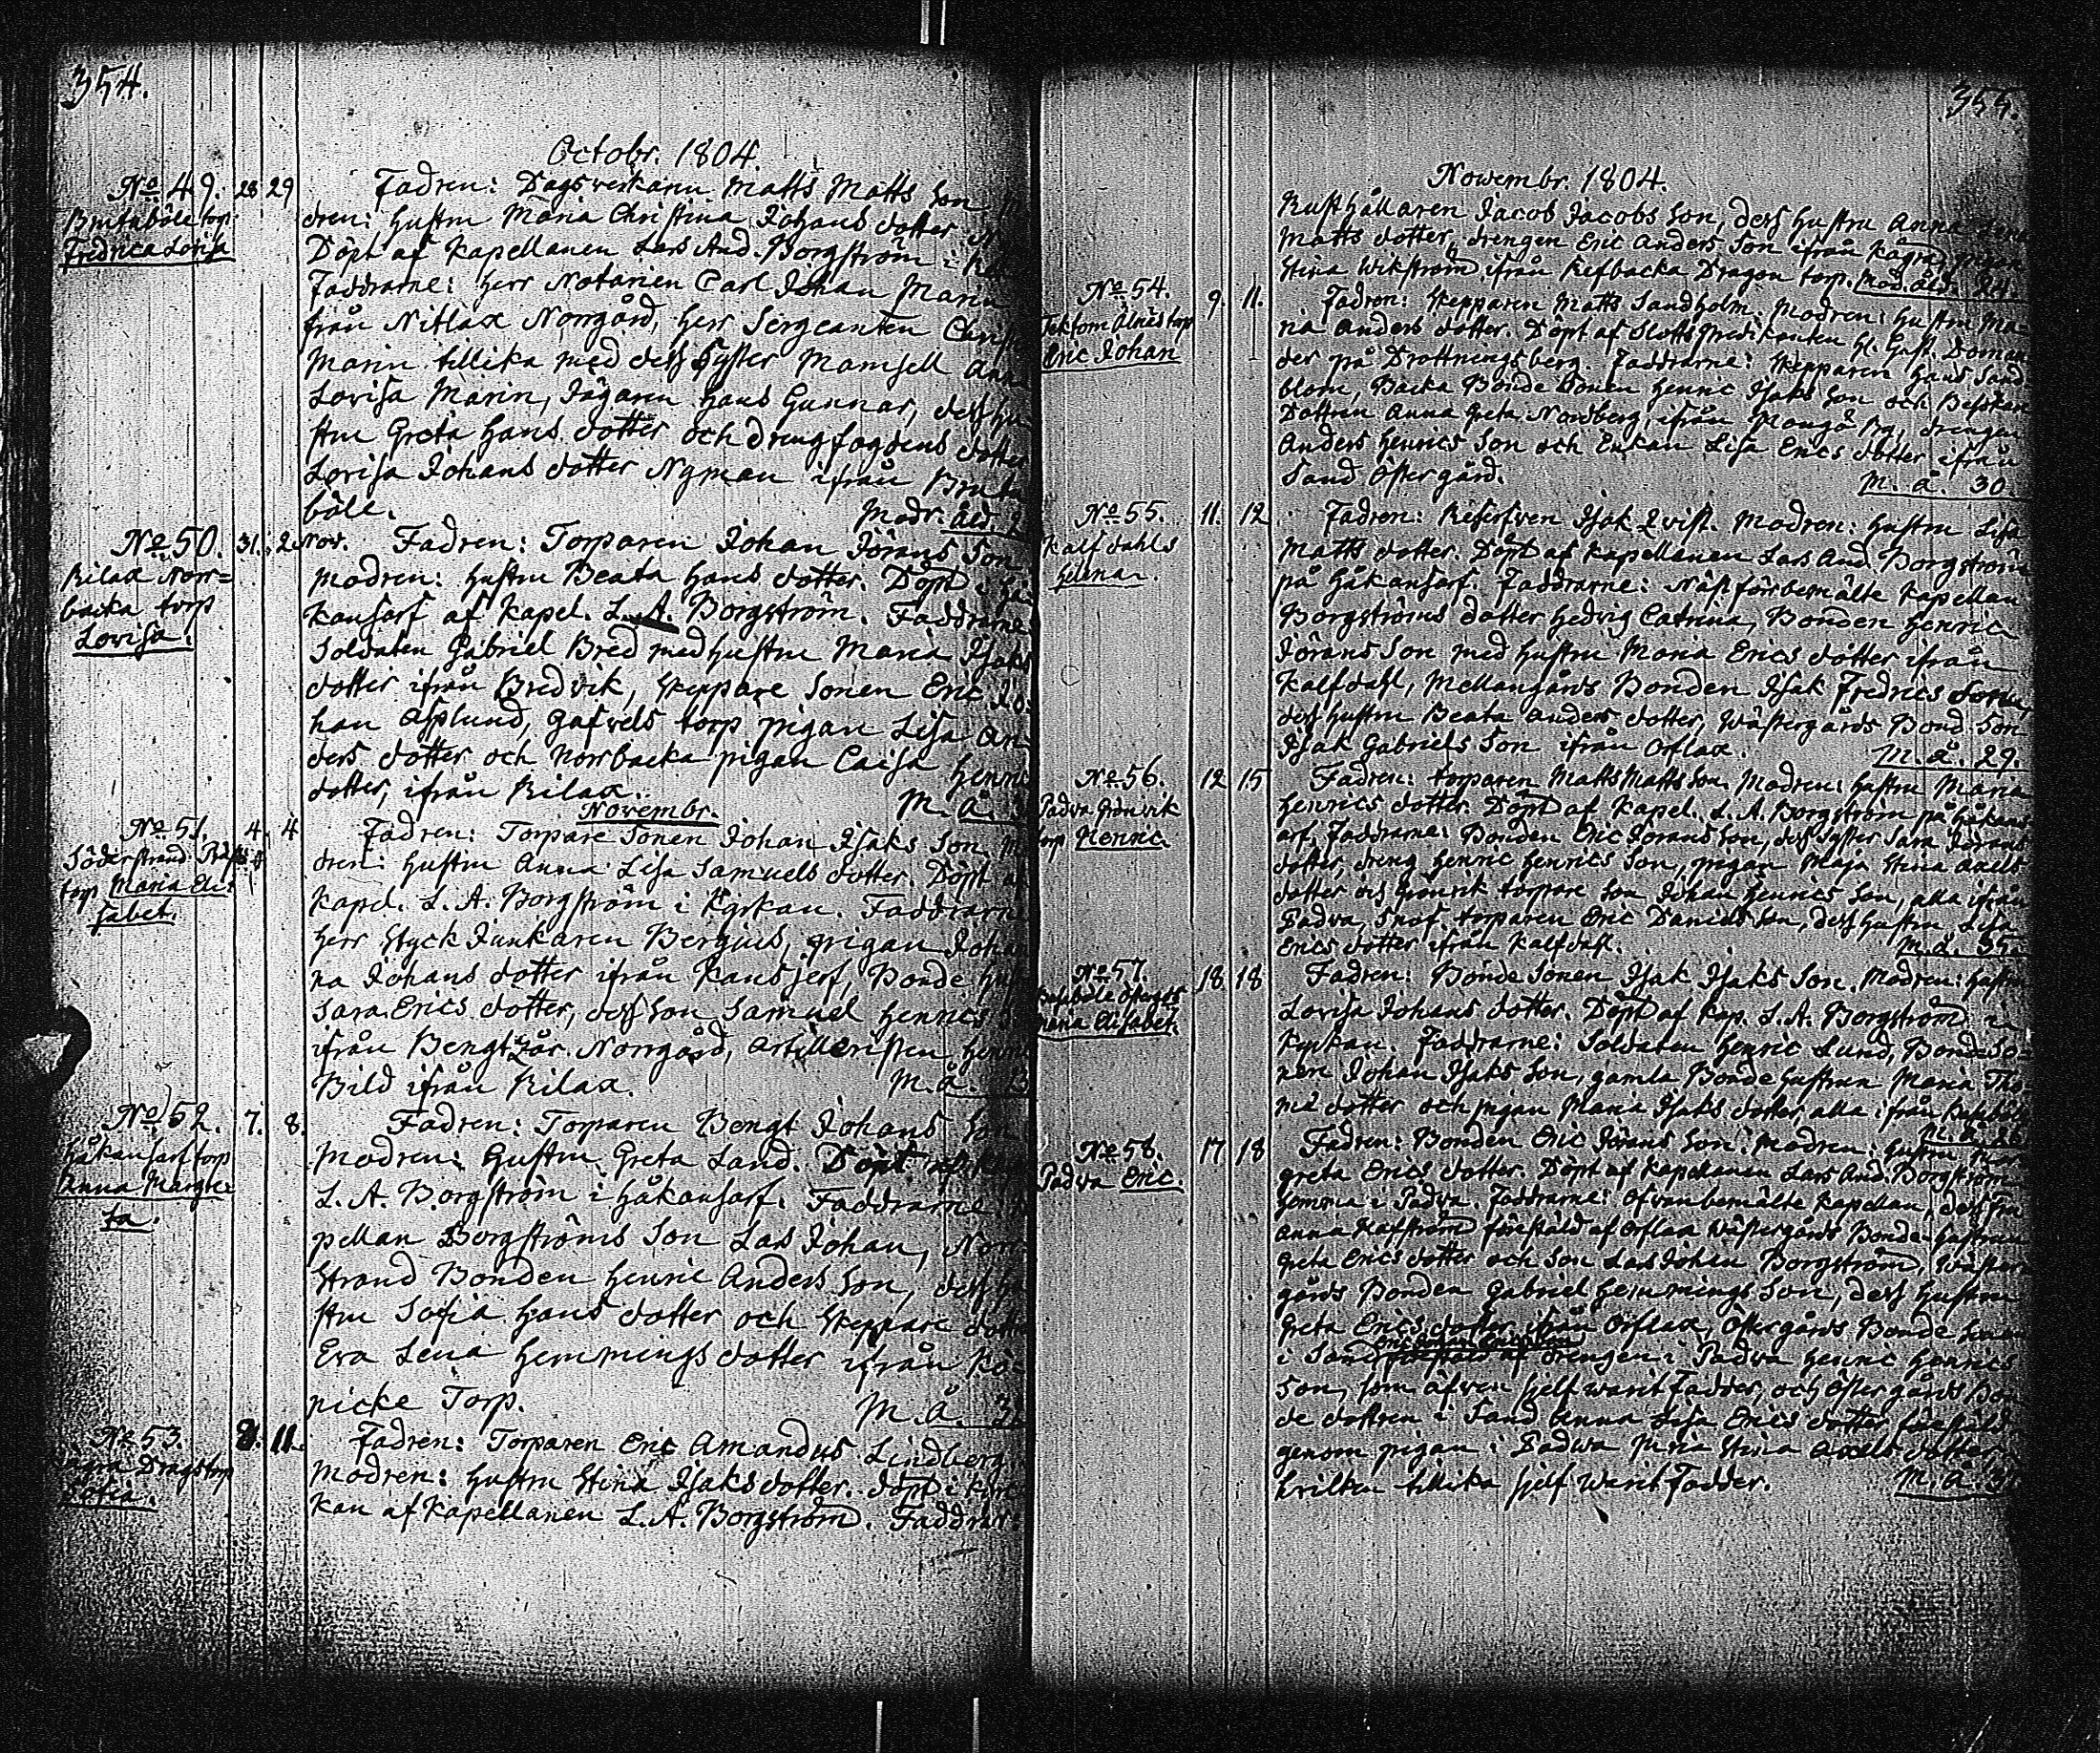 354.
Octobr. 1804.
No 49. 28 29 Fadren: Dagsverkarn Matts Matts Son
Brutaböle torp
Fredrica Lovisa
dren: hustru Maria Christina Johans dotter
Döpt af Kapellanen Lars And. Borgström i
Faddrarne: Herr Notarien Carl Johan Marin
från Nitlax Norrgård, Herr Sergeanten
Marin tillika med dess Syster Mamsell
Lovisa Marin, Jägaren Hans Gunnar, dess
stru Greta Hans dotter och drengfogdens dotter
Lovisa Johans dotter Nyman ifrån
böle. Modr. Åld.
No 50. 31. 2 Nov. Fadren: Torparen Johan Jörans Son
Rilax Norr=
backa torp
Lovisa.
Modren: hustru Beata Hans dotter. Döpt i Hå=
kansarf af Kapel. L. A. Borgström. Faddrarne
Soldaten Gabriel Bred med hustru Maria Isaks
dotter ifrån Bredvik, Skeppare Sonen Eric Jo=
han Asplund, torp pigan Lisa An=
ders dotter och Norrbacka pigan Caisa
dotter, ifrån Rilax. M. Å.
Novembr.
No 51. 4. 4 Fadren: Torpare Sonen Johan Isaks Son
Söderstrand
torp Maria Eli=
sabet.
dren: hustru Anna Lisa Samuels dotter. Döpt
Kapel. L. A. Borgström i Kyrkan. Faddrarne
Herr Styck Junkaren Bergius, pigan
na Johans dotter ifrån Kansjerf, Bonde
Sara Erics dotter, dess Son Samuel Henrics
ifrån Bengtzår Norrgård, Artilleristen
Bild ifrån Rilax. M. å.
No 52. 7. 8. Fadren: Torparen Bengt Johans Son
Håkansarf torp
Anna Margre=
ta.
Modren: hustru Greta Sand. Döpt af
L. A. Borgström i Håkansarf. Faddrarne
pellan Borgströms Son Lars Johan, Norr
Strand Bonden Henric Anders Son, dess
stru Sofia Hans dotter och Skeppare
Eva Lena Hemmings dotter ifrån Kö=
nicke Torp. M. Å.
No 53. 8. 11. Fadren: Torparen Eric Amandus Lindberg
Sofia.
Modren: hustru Stina Isaks dotter. döpt i
kan af Kapellanen L. A. Borgström. Faddrar=
355.
Novembr. 1804.
Rusthållaren Jacob Jacobs Son, dess hustru Anna
Matts dotter, drengen Eric Anders Son ifrån Kågra,
Stina Wikström ifrån Refbacka Dragon torp. Mod. Åld. 24.
No 54. 9. 11. Fadren: Skepparen Matts Sandholm. Modren: hustru Ma=
Tektom torp
Eric Johan
ria Anders dotter. Döpt af Slotts Predikanten
der på Drottningsberg. Faddrarne: Skepparen Hans Sand=
blom, Backa Bonde Sonen Henric Isaks Son och
Dottren Anna Greta Nordberg, ifrån drengen
Anders Henrics Son och Enkan Lisa Erics dotter ifrån
Sand Östergård. M. å. 30.
No 55. 11. 12 Fadren: Isak Qvist. Modren: hustru Lisa
Kalfdahls
Helena.
Matts dotter. Döpt af Kapellanen Lars And. Borgström
på Håkansarf. Faddrarne: Näst förbemälte Kapellan
Borgströms dotter Hedvig Catrina, Bonden Henric
Jörans Son med hustru Maria Erics dotter ifrån
Kalfdahl, Mellangårds Bonden Isak Fredrics Son,
dess hustru Beata Anders dotter, Wästergårds Bond Son
Isak Gabriels Son ifrån Orslax. M. å. 29.
No 56. 12 15 Fadren: torparen Matts Matts Son. Modren: hustru Maria
Padva Grönvik
torp Henric.
Henrics dotter. Döpt af Kapel. L. A. Borgström på Håkans=
arf. Faddrarne: Bonden Eric Jörans Son, dess syster Sara Jörans
dotter, dreng Henric Henrics Son, pigan Maja Stina Axels
dotter och Grönvik torpare Son Johan Henrics Son, alla ifrån
Padva, torparen Eric Daniels Son, dess hustru Lisa
Erics dotter ifrån Kalfdahl. M. å.
No 57. 18 18 Fadren: Bonde Sonen Isak Isaks Son. Modren: hustru
Maria Elisabet.
Lovisa Johans dotter. Döpt af Kap. L. A. Borgström i
Kyrkan. Faddrarne: Soldaten Henric Lund, Bonde So=
nen Johan Isaks Son, gamla Bonde hustrun Maria Tho=
mæ dotter och pigan Maria Isaks dotter alla ifrån
No 58. 17 18 Fadren: Bonden Eric Jörans Son. Modren: hustru
Padva Eric.
greta Erics dotter. Döpt af Kapellanen Lars And. Borgström
hemma i Padva. Faddrarne: Ofvanbemälte Kapellan, dess Fru
Anna föreställd af Orslax Wästergårds Bonde hustrun
Greta Erics dotter och Son Lars Johan Borgström, Wäster=
gårds Bonden Gabriel Hemmings Son, dess hustru
Greta Erics dotter ifrån Orslax, Östergårds Bonde
i Sand drengen i Padva Henric Henrics
Son, som äfven sjelf warit Fadder, och Östergårds Bon=
de dottren i Sand Anna Lisa Erics dotter föreställd
genom pigan i Padwa Maria Stina Axels dotter
hvilken tillika sjelf warit Fadder. M. å.